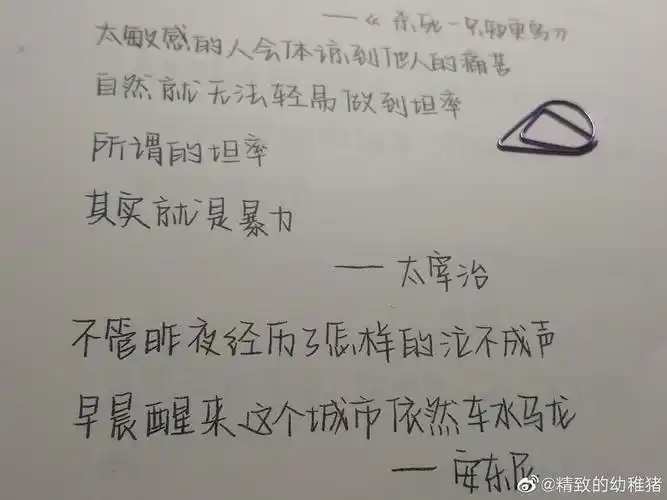 ——《杀死一只知更鸟》
太敏感的人会体谅到他人的痛苦
自然就无法轻易做到坦率
所谓的坦率
其实就是暴力
——太宰治
不管昨夜经历了怎样的泣不成声
早晨醒来这个城市依然车水马龙
——安东尼
@精致的幼稚猪